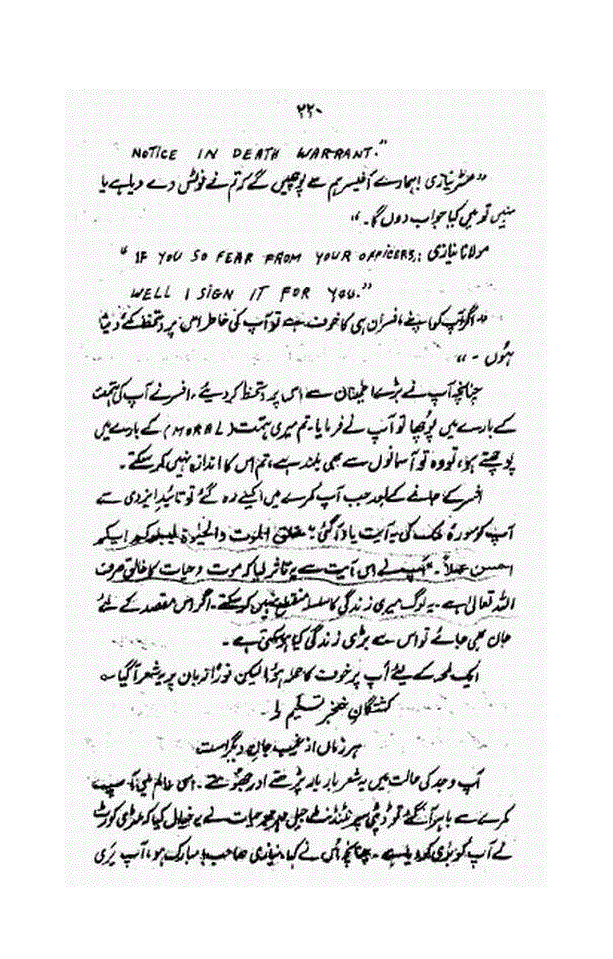 ۲۲۰
NOTICE IN DEATH WARRANT."
"مسٹر نیازی! ہمارے آفیسر ہم سے پوچھیں گے کہ تم نے نوٹس دے دیا ہے یا
نہیں تو میں کیا جواب دوں گا۔"
مولانا نیازی: "IF YOU SO FEAR FROM YOUR OFFICERS,
WELL I SIGN IT FOR YOU."
"اگر آپ کو اپنے افسران ہی کا خوف ہے تو آپ کی خاطر اس پر دستخط کئے دیتا
ہوں۔"
چنانچہ آپ نے بڑے اطمینان سے اس پر دستخط کر دیئے۔ افسر نے آپ کی ہمت
کے بارے میں پوچھا تو آپ نے فرمایا۔ تم میری ہمت (MORAL) کے بارے میں
پوچھتے ہو، تو وہ تو آسمانوں سے بھی بلند ہے، تم اس کا اندازہ نہیں کر سکتے۔
افسر کے جانے کے بعد جب آپ کمرے میں اکیلے رہ گئے تو تائید ایزدی سے
آپ کو سورۂ ملک کی یہ آیت یاد آ گئی: "خلق الموت والحیٰوۃ لیبلوکم ایکم
احسن عملاً۔" آپ نے اس آیت سے یہ تاثر لیا کہ موت و حیات کا خالق صرف
اللہ تعالیٰ ہے۔ یہ لوگ میری زندگی کا سلسلہ منقطع نہیں کر سکتے۔ اگر اس مقصد کے لئے
جان بھی جائے تو اس سے بڑی زندگی کیا ہو سکتی ہے۔
ایک لمحہ کے لیئے آپ پر خوف کا حملہ ہوا لیکن فوراً زبان پر یہ شعر آ گیا ؎
کشتگانِ خنجرِ تسلیم را
ہر زماں از غیب جانِ دیگر است
آپ وجد کی حالت میں یہ شعر بار بار پڑھتے اور جھومتے۔ اسی عالم میں آپ
کمرے سے باہر آ گئے تو ڈپٹی سپرنٹنڈنٹ جیل مہر محمد حیات نے یہ خیال کیا کہ ملٹری کورٹ
نے آپ کو بری کر دیا ہے۔ چنانچہ اُس نے کہا، نیازی صاحب! مبارک ہو، آپ بَری